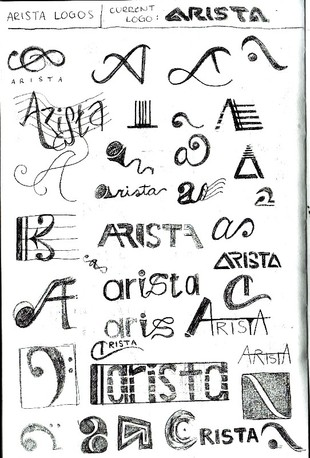 ARISTA LOGOS
CURRENT LOGO: ARISTA
ARISTA
Arista
arista
ARISTA
as
ARISTA
arista
aris
ARISTA
ARISTA
ARISTA
arista
ARISTA